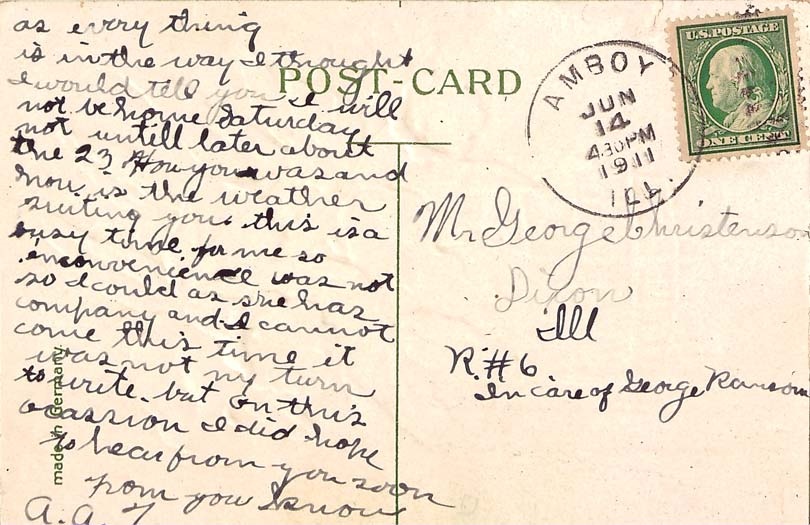 as every thing
is in the way I thought
I would tell you I will
not be home Saturday
not untill later about
the 23 How you was and
how is the weather
suiting you this is a
busy time for me so
inconvenience was not
so I could as she has
company and I cannot
come this time it
was not my turn
to write but on this
ocassion I did hope
to hear from you soon
from you know
A. A. T
POST-CARD
made in Germany.
AMBOY
JUN
14
4 30 PM
1911
ILL.
U.S. POSTAGE
ONE CENT
Mr George Christenson
Dixon
Ill
R. #6
In care of George Ransom